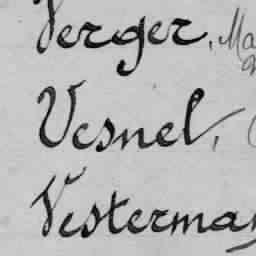 Verger, Ma
Vesnel,
Vesterma